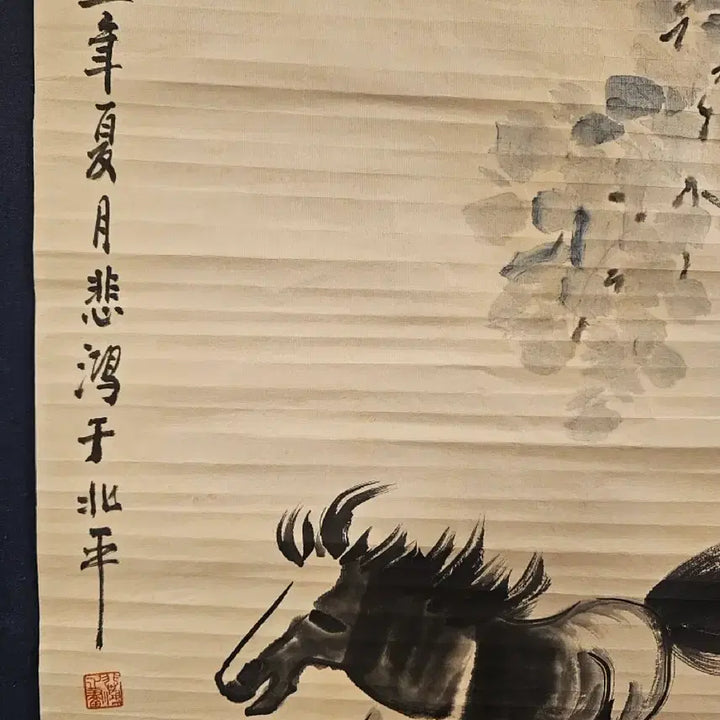 年夏月悲鸿于北平